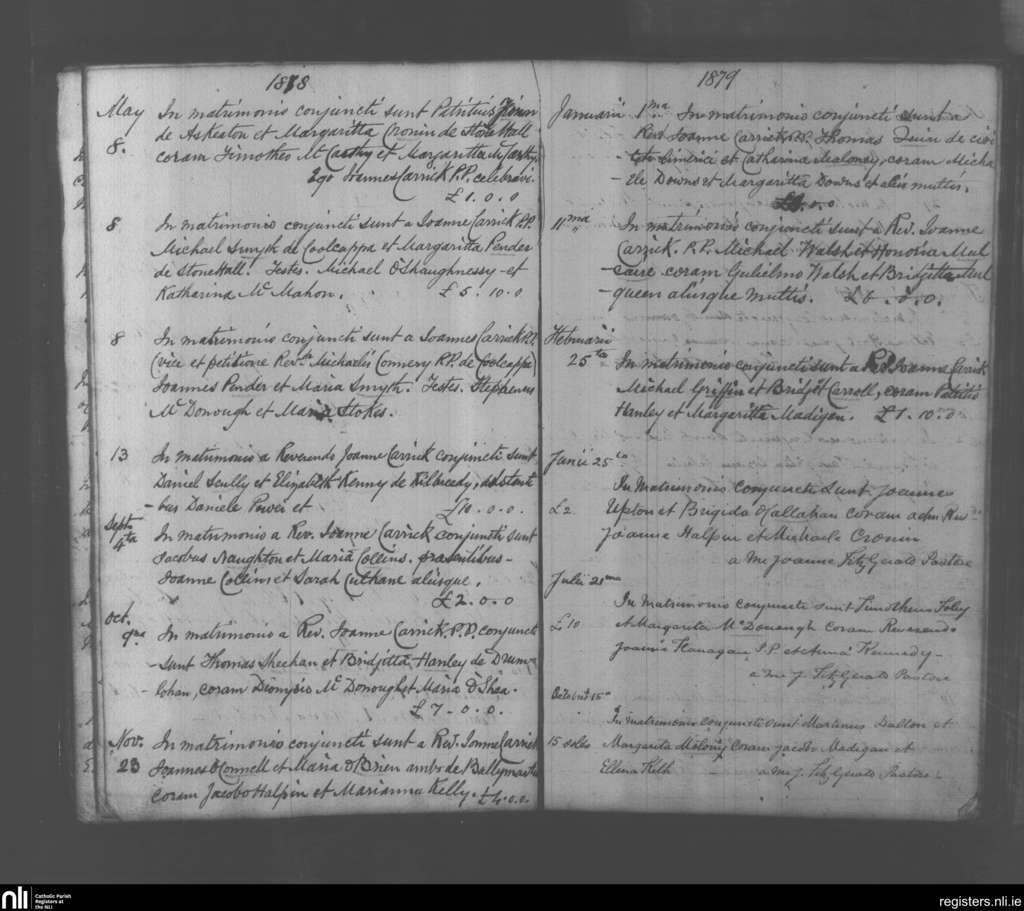 1878
May In matrimonio conjuncti sunt Patritius
8. de Askeaton et Margaritta Cronin de Stone Hall
coram Timotheo Mc Carthy et Margaritta McCarthy.
Ego Joannes Carrick P.P. celebravi.
£1.0.0
8 In matrimonio conjuncti sunt a Joanne Carrick P.P.
Michael Smyth de Coolcappa et Margaritta Pender
de Stone Hall. Testes. Michael O'Shaughnessy et
Katharina Mc Mahon. £5.10.0
8 In matrimonio conjuncti sunt a Joannes Carrick P.P.
(vice et petitione Revdi Michaelis Connery P.P. de Coolcappa)
Joannes Pender et Maria Smyth. Testes. Stephenus
Mc Donough et Maria Stokes.
13 In matrimonio a Reverendo Joanne Carrick conjuncti sunt
Daniel Scully et Elizabeth Kenny de Kilbready, adstanti
-bus Daniele Power et £10.0.0.
Sept. 4ta In matrimonio a Rev. Joanne Carrick conjuncti sunt
Jacobus Naughton et Maria Collins. præsentibus-
Joanne Collins et Sarah Culhane aliisque.
£2.0.0
Oct.
9na In matrimonio a Rev. Joanne Carrick. P.P. conjuncti
-sunt Thomas Sheehan et Bridjitta Hanley de Drum-
-lohan, coram Dionysio Mc Donough et Maria O'Shea.
£7-0.0.
Nov. In matrimonio conjuncti sunt a Rev. Joanne Carrick
23 Joannes O'Connell et Maria O'Brien ambo de
coram Jacobo Halpin et Marianna Kelly. £4.0.0.
1879
Januarii 1ma In matrimonio conjuncti sunt a
Rev Joanne Carrick P.P. Thomas Quin de civi
-tate Limerici et Catharina Maloney, coram Micha
-ele Downs et Margaritta Downs et aliis multis.
£.0.0
11ma In matrimonio conjuncti sunt a Rev. Joanne
Carrick. P.P. Michael Walsh et Honoria Mul
-caire coram Gulielmo Walsh et Bridjitta Mul
-queen aliisque multis. £6.0.0.
Februarii
25ta In matrimonio conjuncti sunt a Rev. Joanne Carrick
Michael Griffin et Bridjit Carroll, coram Patritio
Hanley et Margaritta Madigan. £1.10.0
Junii 25ta
In Matrimonio conjuncti sunt Joannes
£2 Upton et Brigida O'Callahan coram adm Revdo
Joanne Halpin et Michaele Cronin
a me Joanne FitzGerald Pastore
Julii 21ma
In Matrimonio conjuncti sunt Timotheus Foley
£10 et Margarita McDonough coram Reverendo
Joanne Flanagan P.P. et Anna Kennedy-
a me J. FitzGerald Pastore
Octobris 15a
In matrimonio conjuncti sunt Martinus Dalton et
15 solis Margarita Molony coram Jacobo Madigan et
Ellena Kelly - a me J. FitzGerald Pastore.
nli
Catholic Parish
Registers at
the NLI
registers.nli.ie